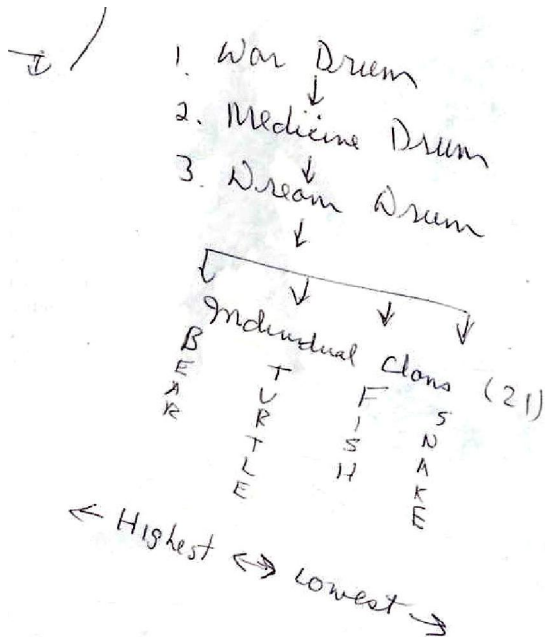 1. War Drum
2. Medicine Drum
3. Dream Drum
Individual Clans (21)
BEAR TURTLE FISH SNAKE
← Highest ↔ Lowest →